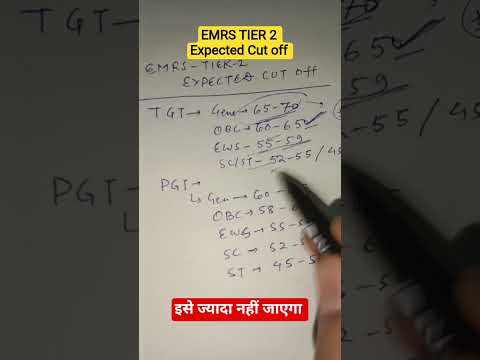 EMRS TIER 2
Expected Cut off
EMRS-TIER-2
EXPECTED CUT OFF
TGT → Gen → 65-70
OBC → 60-65
EWS - 55-59
SC/ST - 52-55/45
PGT →
↳ Gen → 60
OBC → 58 -
EWS → 55 -
SC → 52 -
ST → 45 -
इसे ज्यादा नहीं जाएगा